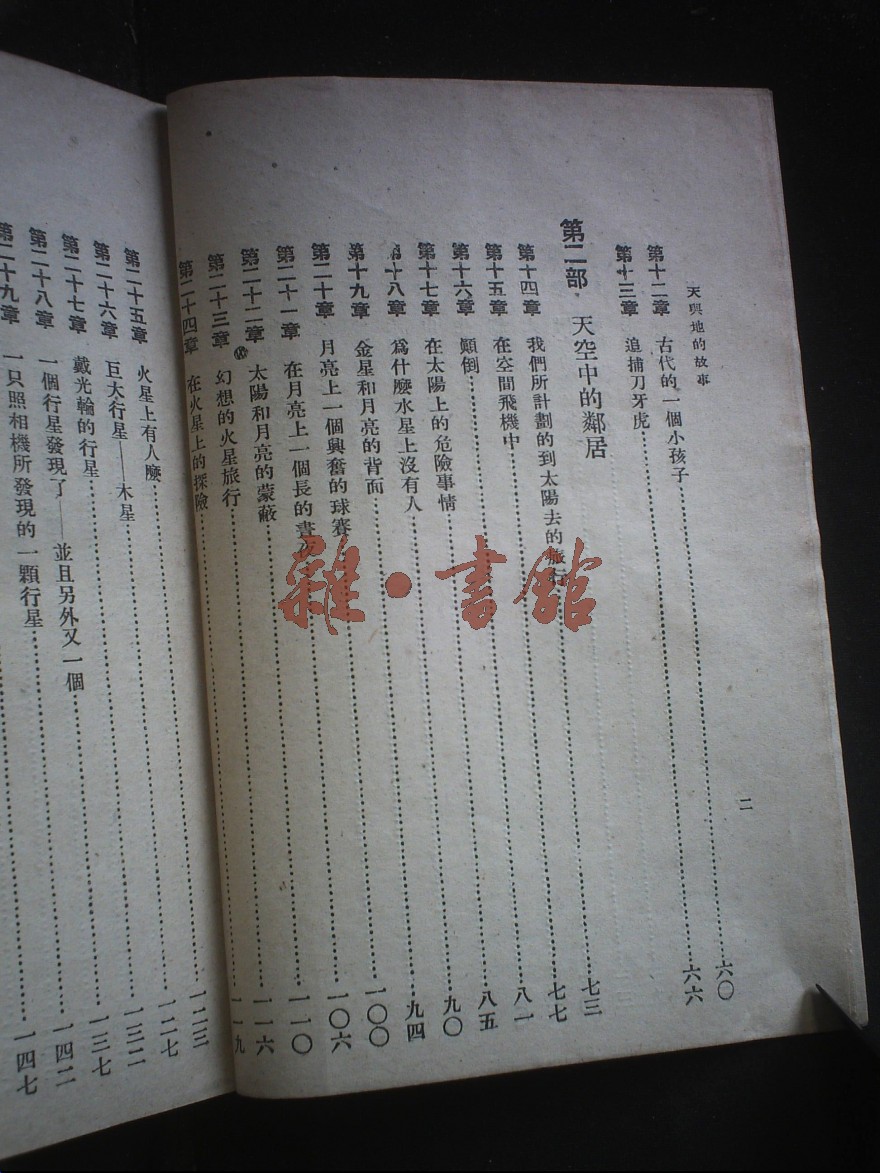 天與地的故事
二
第十二章 古代的一個小孩子……六〇
第十三章 追捕刀牙虎……六六
第二部 天空中的鄰居
第十四章 我們所計劃的到太陽去的旅行……七三
第十五章 在空間飛機中……七七
第十六章 顛倒……八一
第十七章 在太陽上的危險事情……八五
第十八章 爲什麼水星上沒有人……九〇
第十九章 金星和月亮的背面……九四
第二十章 月亮上一個興奮的球賽……一〇〇
第二十一章 在月亮上一個長的晝夜……一〇六
第二十二章 太陽和月亮的蒙蔽……一一〇
第二十三章 幻想的火星旅行……一一六
第二十四章 在火星上的探險……一一九
第二十五章 火星上有人麼……一二三
第二十六章 巨大行星——木星……一二七
第二十七章 戴光輪的行星……一三二
第二十八章 一個行星發現了——並且另外又一個……一三七
第二十九章 一只照相機所發現的一顆行星……一四二
一四七
雜·書館